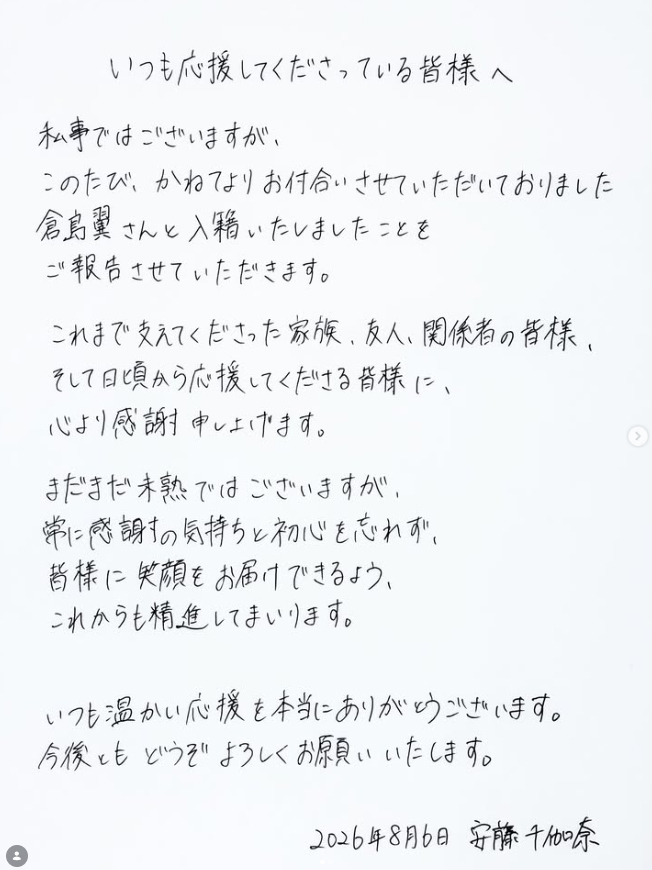 いつも応援してくださっている皆様へ
私事ではございますが、
このたび、かねてよりお付合いさせていただいておりました
倉島翼さんと入籍いたしましたことを
ご報告させていただきます。
これまで支えてくださった家族、友人、関係者の皆様、
そして日頃から応援してくださる皆様に、
心より感謝申し上げます。
まだまだ未熟ではございますが、
常に感謝の気持ちと初心を忘れず、
皆様に笑顔をお届けできるよう、
これからも精進してまいります。
いつも温かい応援を本当にありがとうございます。
今後ともどうぞよろしくお願いいたします。
2026年8月6日 安藤千伽奈